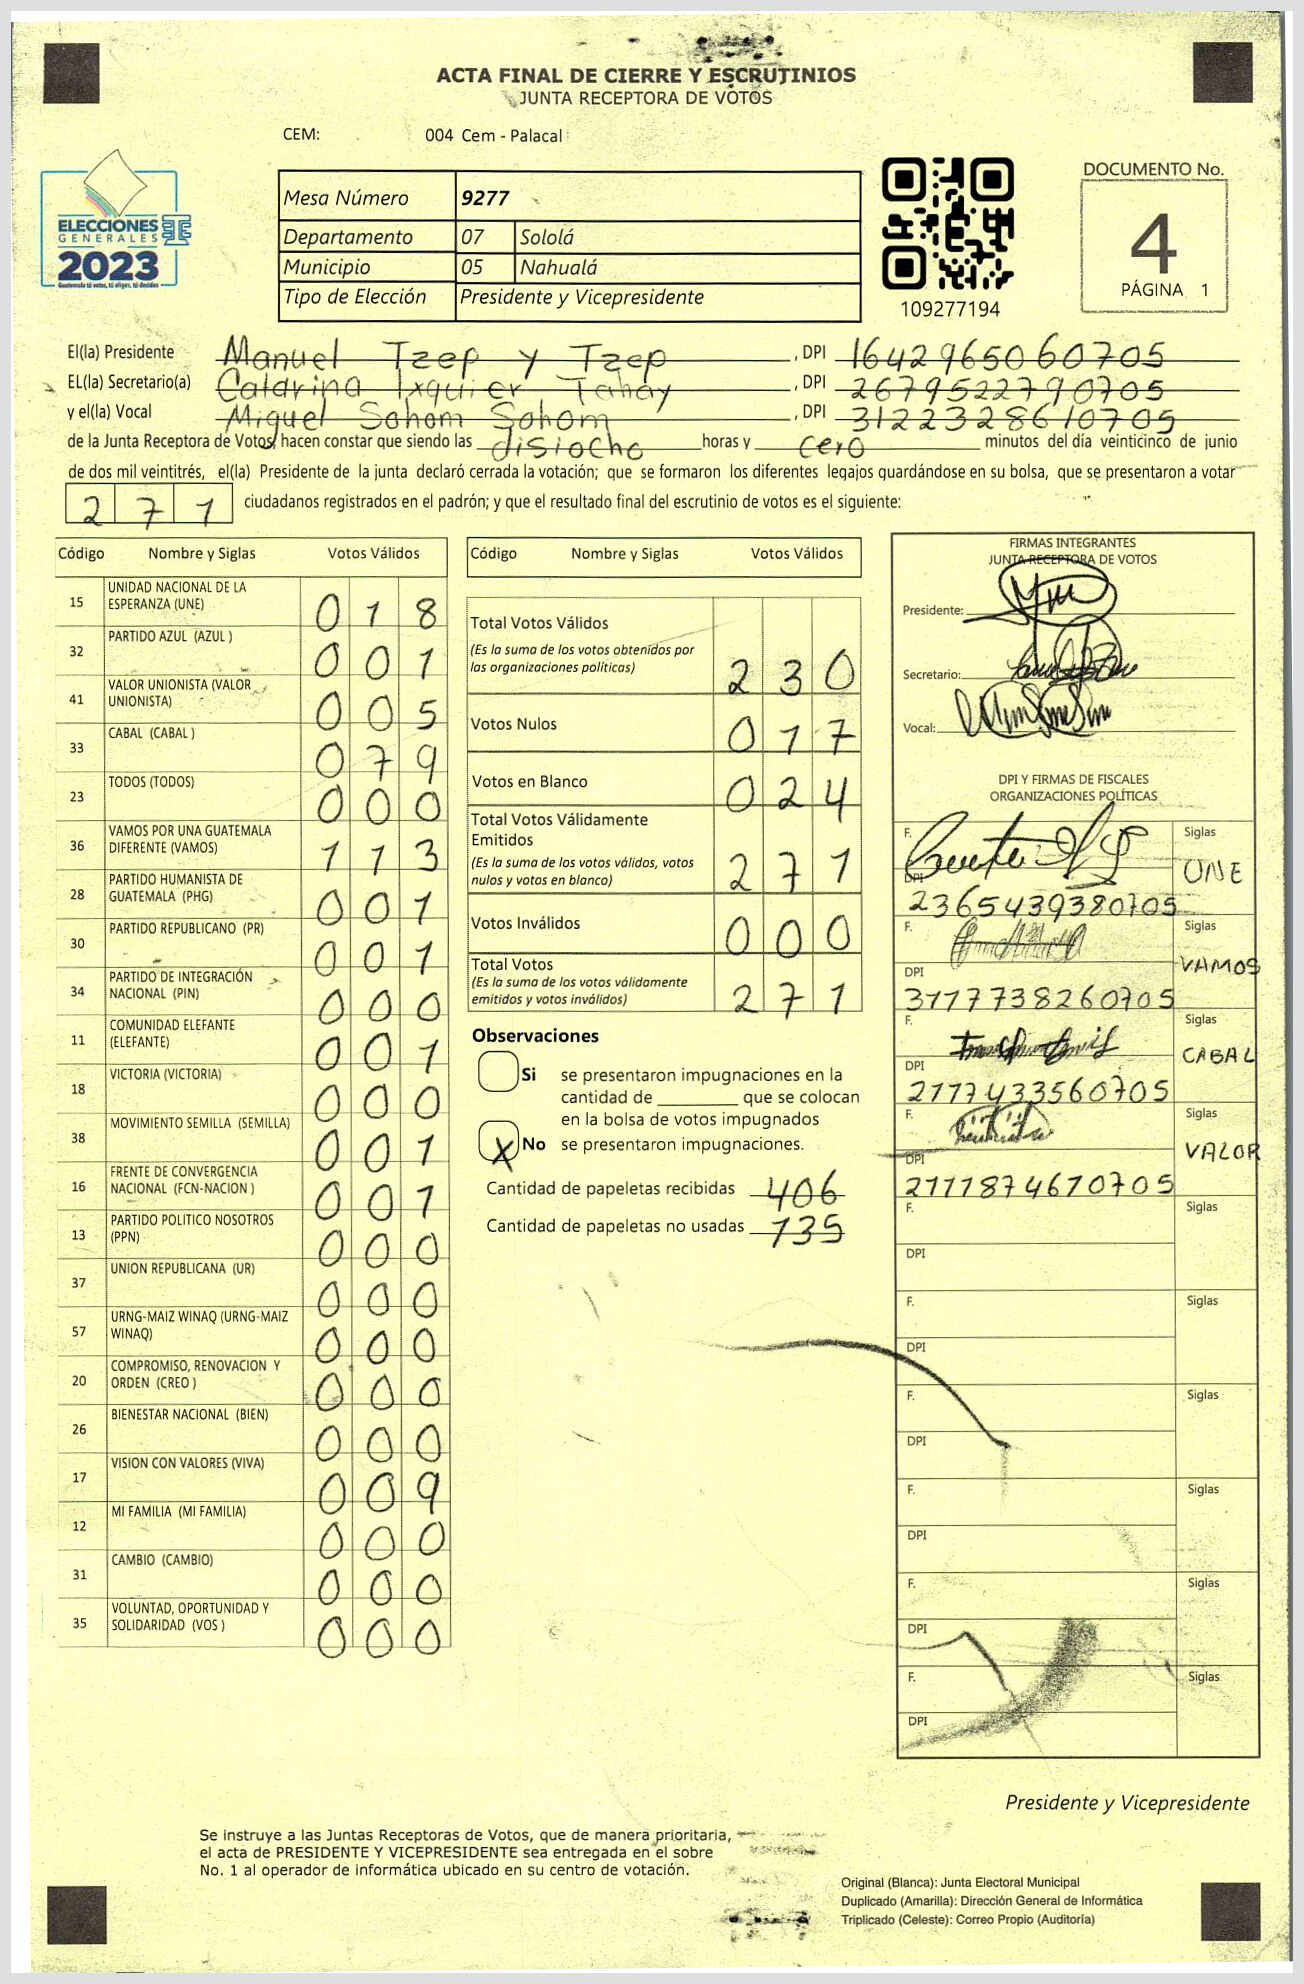 ACTA FINAL DE CIERRE Y ESCRUTINIOS
JUNTA RECEPTORA DE VOTOS
CEM: 004 Cem - Palacal
ELECCIONES
GENERALES
2023
Guatemala tú votas, tú eliges, tú decides
Mesa Número 9277
Departamento 07 Sololá
Municipio 05 Nahualá
Tipo de Elección Presidente y Vicepresidente
109277194
DOCUMENTO No.
4
PÁGINA 1
El(la) Presidente Manuel Tzep y Tzep, DPI 1642965060705
EL(la) Secretario(a) Catarina Ixquier Tahay, DPI 2679522790705
y el(la) Vocal Miguel Sohom Sohom, DPI 3122328610705
de la Junta Receptora de Votos, hacen constar que siendo las disiocho horas y cero minutos del día veinticinco de junio
de dos mil veintitrés, el(la) Presidente de la junta declaró cerrada la votación; que se formaron los diferentes legajos guardándose en su bolsa, que se presentaron a votar
2 7 1 ciudadanos registrados en el padrón; y que el resultado final del escrutinio de votos es el siguiente:
Código Nombre y Siglas Votos Válidos
15 UNIDAD NACIONAL DE LA ESPERANZA (UNE) 0 1 8
32 PARTIDO AZUL (AZUL ) 0 0 1
41 VALOR UNIONISTA (VALOR UNIONISTA) 0 0 5
33 CABAL (CABAL ) 0 7 9
23 TODOS (TODOS) 0 0 0
36 VAMOS POR UNA GUATEMALA DIFERENTE (VAMOS) 1 1 3
28 PARTIDO HUMANISTA DE GUATEMALA (PHG) 0 0 1
30 PARTIDO REPUBLICANO (PR) 0 0 1
34 PARTIDO DE INTEGRACIÓN NACIONAL (PIN) 0 0 0
11 COMUNIDAD ELEFANTE (ELEFANTE) 0 0 1
18 VICTORIA (VICTORIA) 0 0 0
38 MOVIMIENTO SEMILLA (SEMILLA) 0 0 1
16 FRENTE DE CONVERGENCIA NACIONAL (FCN-NACION ) 0 0 1
13 PARTIDO POLITICO NOSOTROS (PPN) 0 0 0
37 UNION REPUBLICANA (UR) 0 0 0
57 URNG-MAIZ WINAQ (URNG-MAIZ WINAQ) 0 0 0
20 COMPROMISO, RENOVACION Y ORDEN (CREO ) 0 0 0
26 BIENESTAR NACIONAL (BIEN) 0 0 0
17 VISION CON VALORES (VIVA) 0 0 9
12 MI FAMILIA (MI FAMILIA) 0 0 0
31 CAMBIO (CAMBIO) 0 0 0
35 VOLUNTAD, OPORTUNIDAD Y SOLIDARIDAD (VOS ) 0 0 0
Código Nombre y Siglas Votos Válidos
Total Votos Válidos 2 3 0
(Es la suma de los votos obtenidos por
las organizaciones políticas)
Votos Nulos 0 1 7
Votos en Blanco 0 2 4
Total Votos Válidamente
Emitidos 2 7 1
(Es la suma de los votos válidos, votos
nulos y votos en blanco)
Votos Inválidos 0 0 0
Total Votos 2 7 1
(Es la suma de los votos válidamente
emitidos y votos inválidos)
Observaciones
Si se presentaron impugnaciones en la
cantidad de ________ que se colocan
en la bolsa de votos impugnados
X No se presentaron impugnaciones.
Cantidad de papeletas recibidas 406
Cantidad de papeletas no usadas 135
FIRMAS INTEGRANTES
JUNTA RECEPTORA DE VOTOS
Presidente:
Secretario:
Vocal:
DPI Y FIRMAS DE FISCALES
ORGANIZACIONES POLÍTICAS
F. Siglas UNE
DPI 2365439380705
F. Siglas VAMOS
DPI 3117738260705
F. Siglas CABAL
DPI 2177433560705
F. Siglas VALOR
DPI 2111874610705
F. Siglas
DPI
F. Siglas
DPI
F. Siglas
DPI
F. Siglas
DPI
F. Siglas
DPI
F. Siglas
DPI
Presidente y Vicepresidente
Se instruye a las Juntas Receptoras de Votos, que de manera prioritaria,
el acta de PRESIDENTE Y VICEPRESIDENTE sea entregada en el sobre
No. 1 al operador de informática ubicado en su centro de votación.
Original (Blanca): Junta Electoral Municipal
Duplicado (Amarilla): Dirección General de Informática
Triplicado (Celeste): Correo Propio (Auditoría)